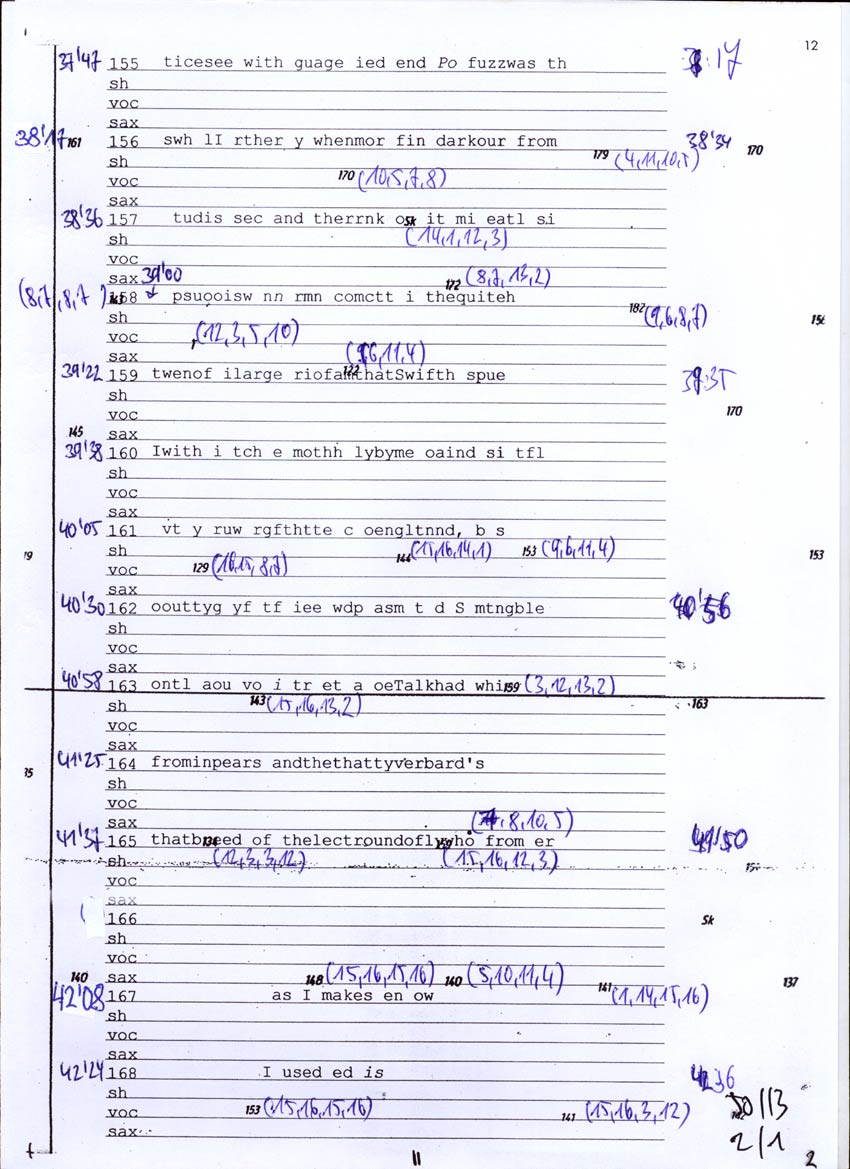 12
37'47 155 ticesee with guage ied end Po fuzzwas th :17
sh
voc
sax
38'17 161 156 swh lI rther y whenmor fin darkour from 38'34 170
sh 179 (4,11,10,5)
voc 170 (10,5,7,8)
sax
38'36 157 tudis sec and therrnk o sk it mi eatl si
sh (14,1,12,3)
voc
sax 39'00 172 (8,7,13,2)
(8,7,8,7) 158 psuooisw nn rmn comctt i thequiteh
sh 182 (9,6,8,7)
voc (12,3,5,10)
sax (9,6,11,4)
39'22 159 twenof ilarge riofamthatSwifth spue 39:35
sh
voc 170
145 sax
39'38 160 Iwith i tch e mothh lybyme oaind si tfl
sh
voc
sax
40'05 161 vt y ruw rgfthtte c oengltnnd, b s
sh 144 (15,16,14,1) 153 (9,6,11,4) 153
voc 129 (16,15,8,7)
sax
40'30 162 oouttyg yf tf iee wdp asm t d S mtngble 40'56
sh
voc
sax
40'58 163 ontl aou vo i tr et a oeTalkhad whi 159 (3,12,13,2)
sh 143 (15,16,13,2) 163
voc
sax
41'25 164 frominpears andthethattyverbard's
sh
voc
sax (8,10,5)
41'37 165 thatbreed of thelectroundoflywho from er 41'50
sh (12,3,3,12) (15,16,12,3)
voc
sax
166 Sk
sh
voc
140 sax 148 (15,16,15,16) 140 (5,10,11,4) 137
42'08 167 as I makes en ow 141 (1,14,15,16)
sh
voc
sax
42'24 168 I used ed is 42 36
sh
voc 153 (15,16,15,16) 141 (15,16,3,12) 50//3
sax 2/1
11 2